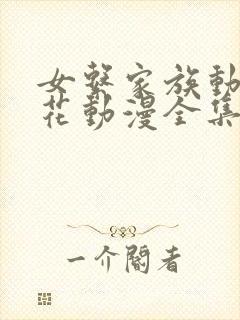 女系家族動
花動漫全集
一介閣者